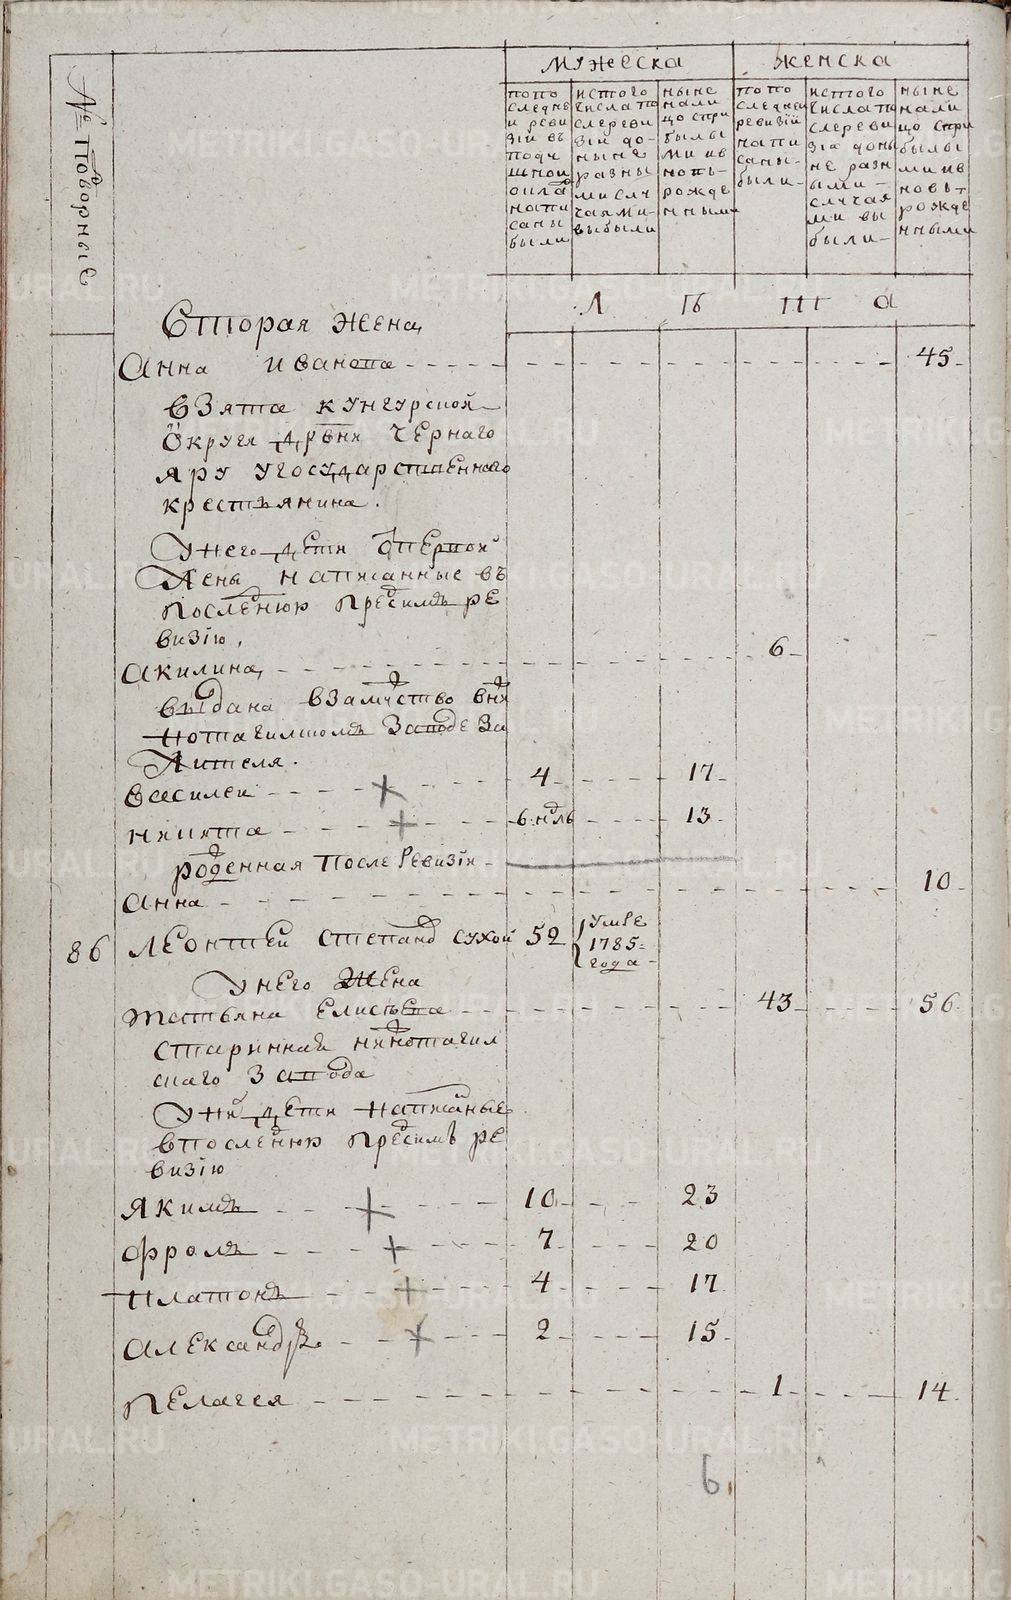 № Дворные
Мужеска
Женска
по по
следне
и реви
зiи въ
подушнои
окладъ
напи
саны
были
исто­го
числа по
сле реви
зiи до-
ныне
разны
ми слу
чаями-
выбыли
ныне
нали
цо спри
былы
ми и в
новь-
рожде
нными
по по
следней
ревизiи
напи
саны-
были-
исто­го
числа по
сле реви
зiи доны
не разн
ыми-
случая
ми вы
были-
ныне
нали
цо спри
былы
ми и в
новь-
рожде
нными
Л Ѣ Т А
Вторая жена,
Анна Иванова 45
взята кунгурской
округи дрвни Чернаго
яру угосударственнаго
крестьянина.
У него дети отпервой
жены написанные въ
последнюю предсимъ ре
визiю,
Акилина, 6
выдана взамужство в
нотагилском заводе за
жителя.
Василеи 4 17
Никита 6 ндль 13
рожденная после ревизiи
Анна 10
86 Леонтеи Степановъ Сухои 52 умре
1785
года
У него жена
Татьяна Елисѣева 43 56
стариннаи нижнотагил
скаго завода
У них дети написаные
в последнюю предсимъ ре
визiю
Якимъ 10 23
Фролъ 7 20
Платонъ 4 17
Александръ 2 15
Пелагея 1 14
6
METRIKI.GASO-URAL.RU